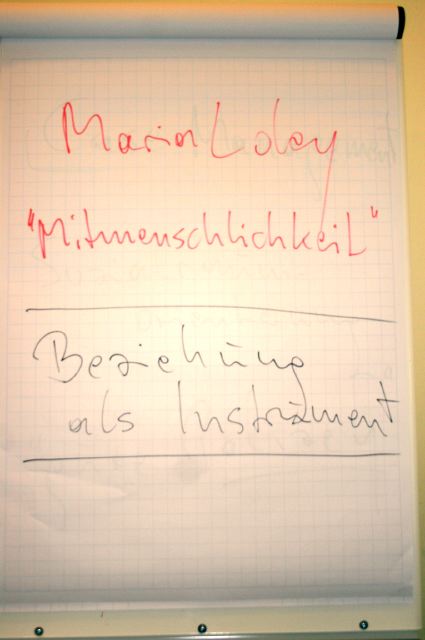 Maria Loley
"Mitmenschlichkeit"
Beziehung
als Instrument